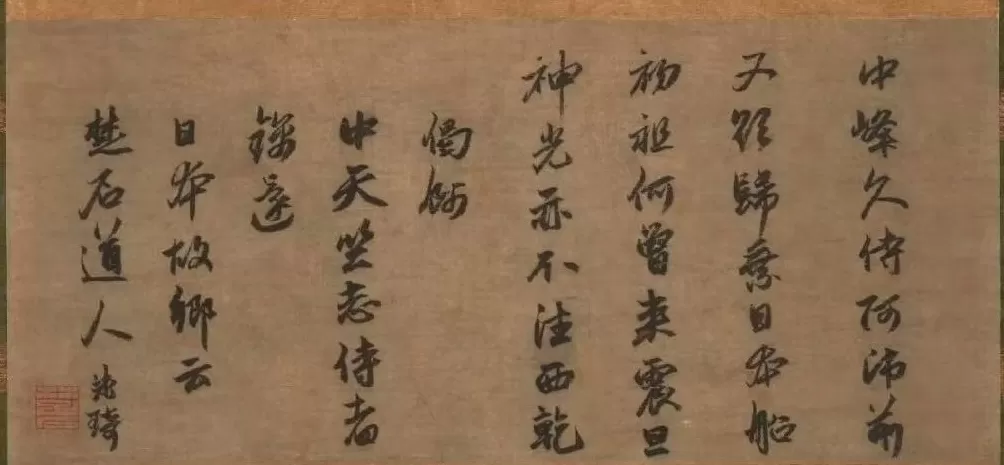 中峰久侍阿師前
又領歸乘日本船
初祖何曾来震旦
神光亦不往西乾
偈餞
中天竺志侍者
錦還
日本故鄉云
楚石道人梵琦